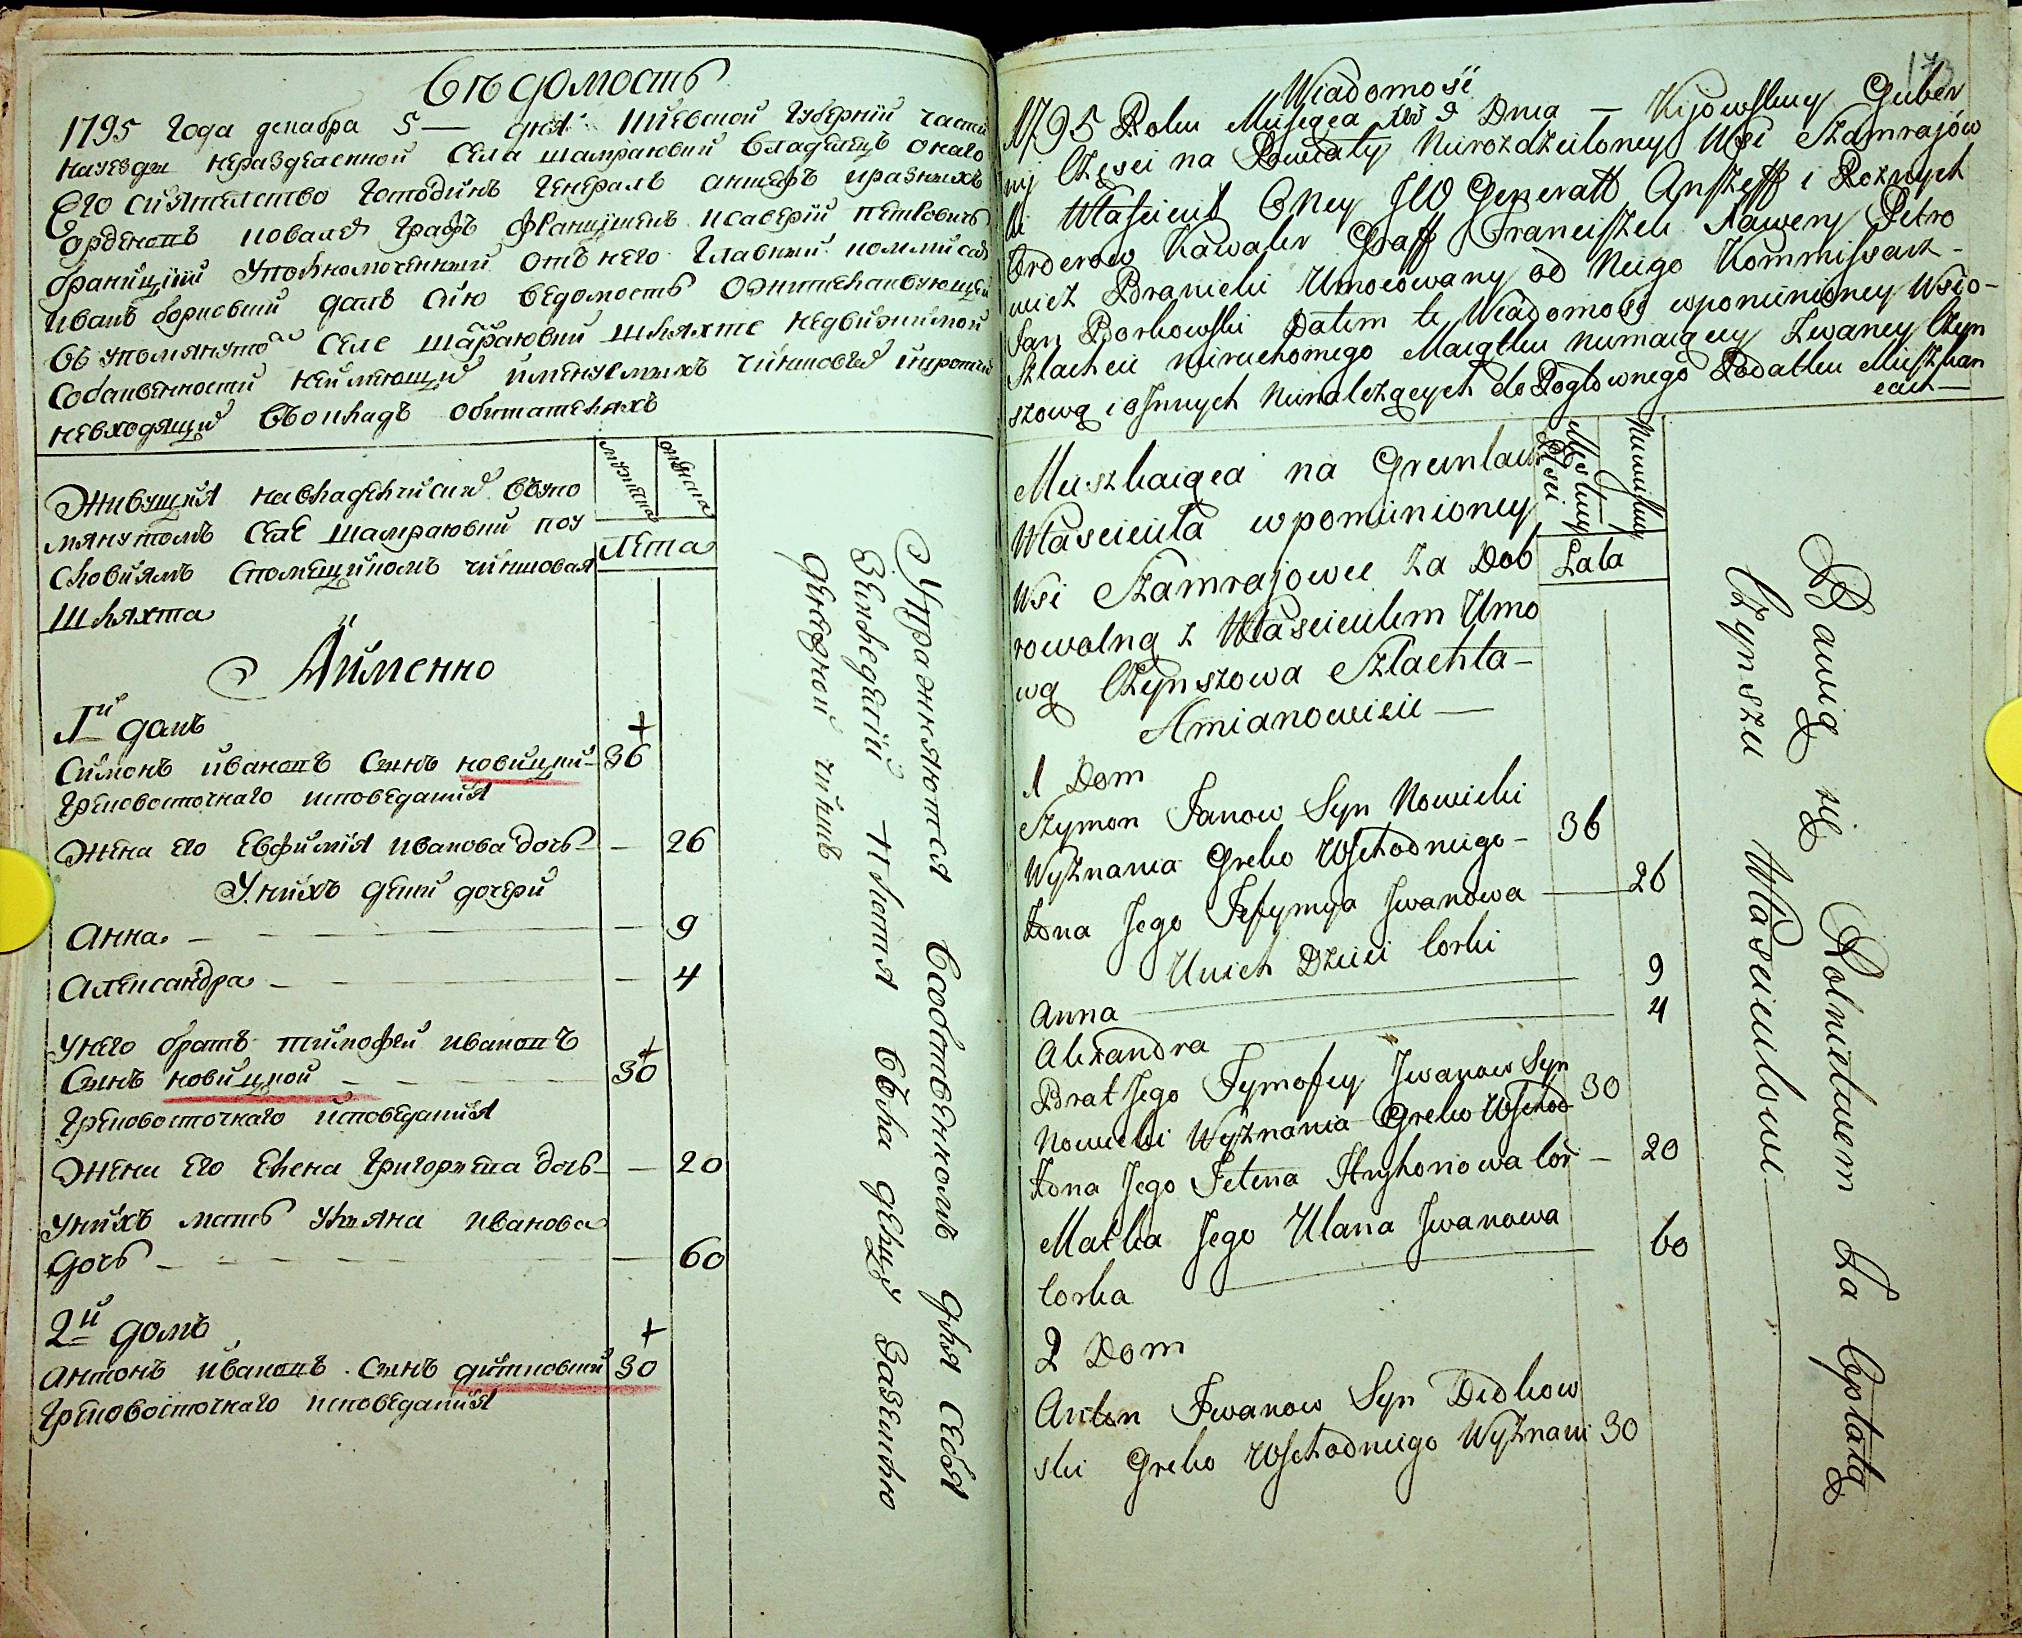 Въдомость
1795 Года декабря 5 — дня Киевской Губернїи части
на уезды неразделенной Села шамраювки Владелецъ онаго
Его сиятелство Господинъ Генералъ аншефъ иразныхъ
орденовъ ковалер Графъ Францишекъ исаверїи петровичъ
браницкїй Уполномоченный отъ него Главный коммисар
иванъ борковский далъ сию ведомость Ожителствующей
въ упомянутой Селе шамраювки шляхте недвижимой
Собственности неимеющие именуемыхъ чиншовые ипротчий
невходящие въ окладъ обитателяхъ
Живущия навладенческие въ упо
мянутомъ Селе шамраювки поу
словиямъ спомещикомъ чиншовая
шляхта
мужеска
женска
Лета
Аименно
1й домъ
Симонъ ивановъ Сынъ новицкий 36
Грековосточнаго исповедания
Жена его Евфимїя иванова дочь — 26
У нихъ дети дочери
Анна — 9
Александра — 4
Унего братъ тимофей ивановъ
Сынъ новицкой — 30
Грековосточнаго исповедания
Жена его Елена Григорьева дочь — 20
Унихъ мать Ульяна иванова
дочь — 60
2й домъ
антонъ ивановъ Сынъ дитковский 30
Грековосточнаго исповедания
Упражняются Всобственномъ для себя
Земледелїи Платя въ Года
денежной чиншъ
173
Wiadomość
1795 Roku Miesięca Dnia — Kijowskiey Guber
nij Części na Powiaty Nierozdzieloney Wsi Szamrajów
ki Właściciel Oney JW Generałł Anszeff i Rożnych
Orderow Kawaler Graff Franciszek Xawery Petro
wicz Branicki Umocowany od Niego Kommissarz —
Jan Borkowski Datem te Wiadomość wpomnioney Wsio —
Szlachcie nieruchomego Maiątku niemaiącey Zwaney Czyn
szową i osnnych Nienalezących do Pogłownego Podatku Mieszkan
cach —
Mieszkaiąca na Gruntach
Właściciela wpomnioney
Wsi Szamrajowce Za Dob
rowolną z Właścicielem Umo
wą Czynszowa Szlachta —
Amianowicie —
Męskiey
Płci
Niewieskiey
Lata
1 Dom
Szymon Janow Syn Nowicki
Wyznania Greko Wschodniego — 36
Żona Jego Jefymya Jwanowa — 26
Unich Dzieci Corki
Anna — 9
Alexandra — 4
Brat Jego Tymofey Jwanow Syn
Nowicki Wyznania Greko Wschod 30
Żona Jego Jelena Hryhoriowa Cor — 20
Matka Jego Ulana Jwanowa
Corka — 60
2 Dom
Anton Jwanow Syn Didkow
ski Greko Wschodniego Wyznani 30
Bawią się Rolnictwem Za Opłatą
Czynszu Właścicielowi —